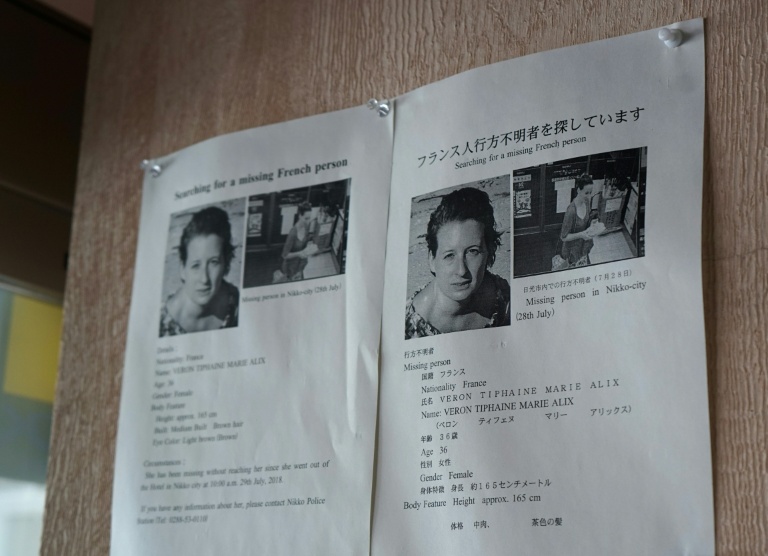 Searching for a missing French person
Missing person in Nikko-city (28th July)
Details :
Nationality France
Name: VERON TIPHAINE MARIE ALIX
Age 36
Gender Female
Body Feature
Height: approx. 165 cm
Built: Medium Built Brown hair
Eye Color: Light brown (Brown)
Circumstances :
She has been missing without reaching her since she went out of
the Hotel in Nikko city at 10:00 a.m. 29th July, 2018.
If you have any information about her, please contact Nikko Police
Station:Tel: 0288-53-0110
フランス人行方不明者を探しています
Searching for a missing French person
日光市内での行方不明者(7月28日)
Missing person in Nikko-city
(28th July)
行方不明者
Missing person
国籍 フランス
Nationality France
氏名 VERON TIPHAINE MARIE ALIX
Name: VERON TIPHAINE MARIE ALIX
(ベロン ティフェヌ マリー アリックス)
年齢 36歳
Age 36
性別 女性
Gender Female
身体特徴 身長 約165センチメートル
Body Feature Height approx. 165 cm
体格 中肉、 茶色の髪